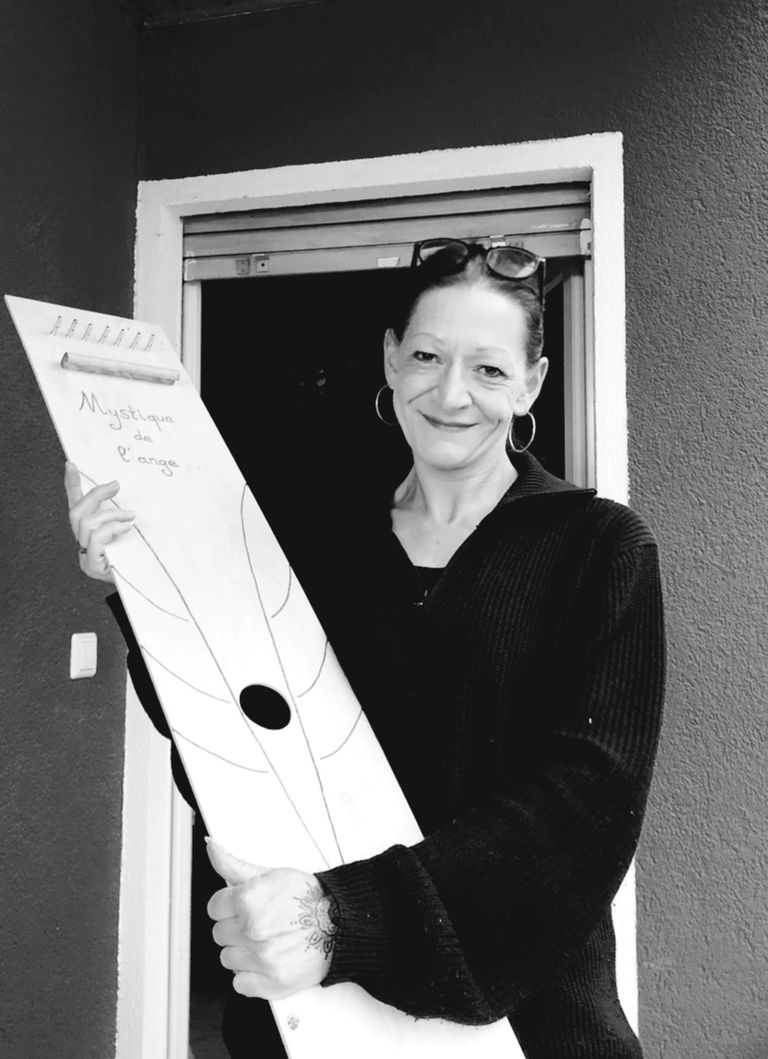 Mystique
de
l'ange...